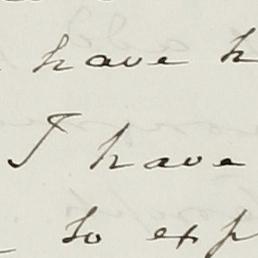 have h
I have
to exp